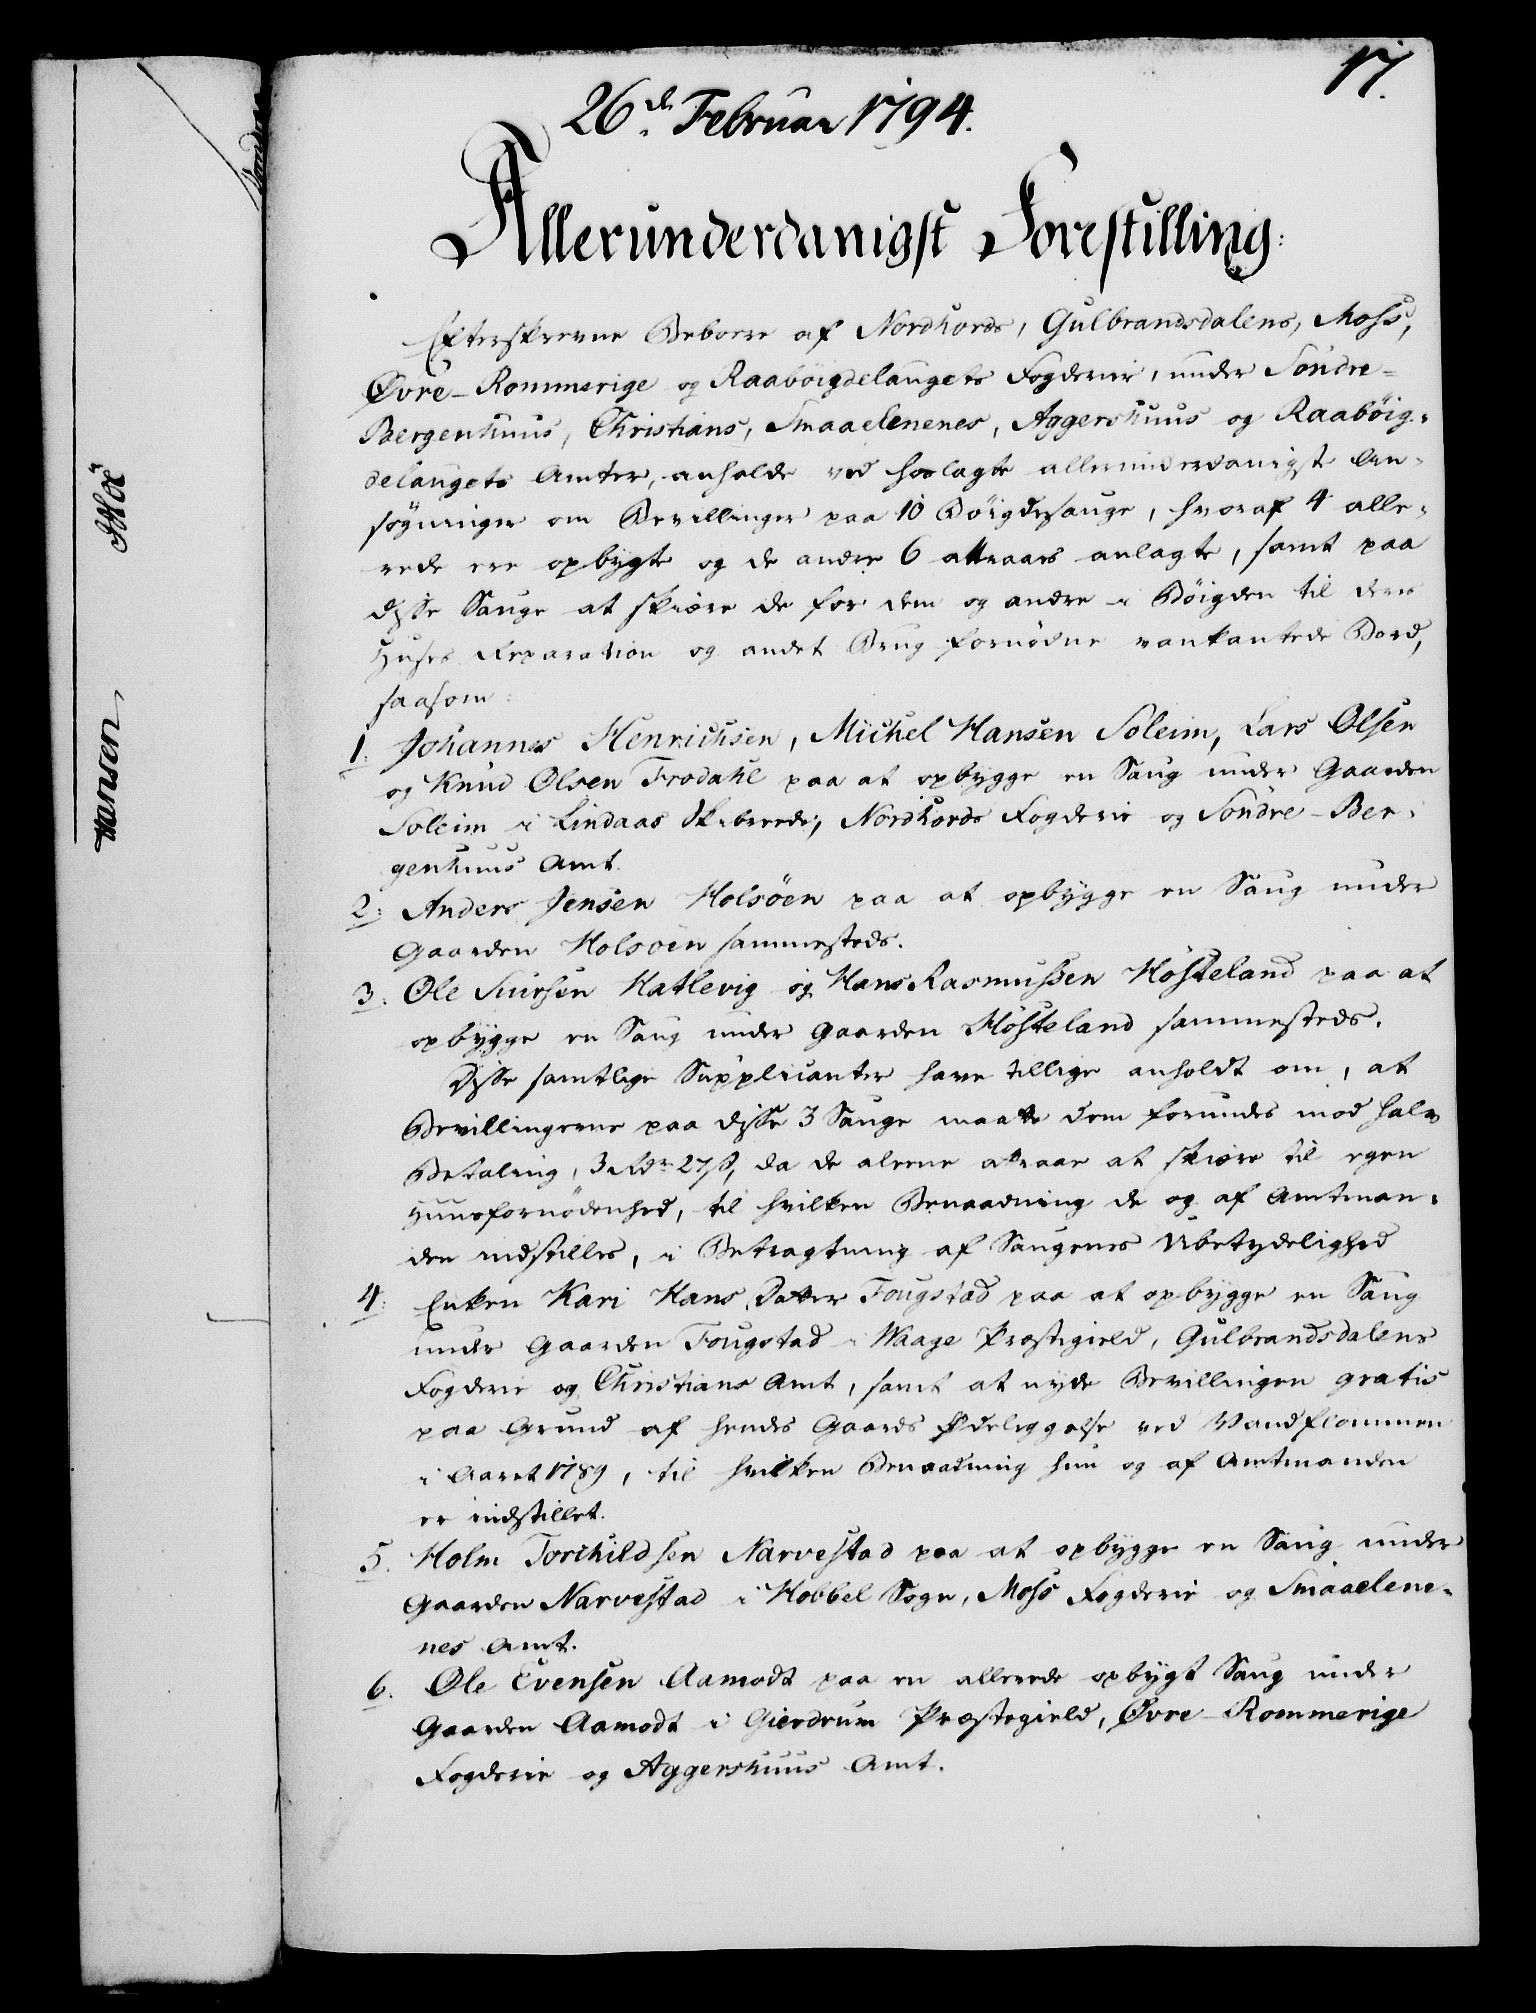 17.
26de Februar 1794.
Allerunderdanigst Forestilling:
Efterskrevne Beboere af Nordhords, Gulbrandsdalens, Moss,
Øvre-Rommerige og Raabøigdelaugets Fogderier, under Söndre-
Bergenhuus, Christians, Smaaelenenes, Aggershuus og Raabøig-
delaugets Amter, anholde ved hoslagte allerunderdanigste An-
søgninger om Bevillinger paa 10 Böigdesauge, hvoraf 4 alle-
rede ere opbygte og de andre 6 attraaes anlagte, samt paa
disse Sauge at skiære de for dem og andre i Böigden til deres
Huses Reparation og andet Brug fornödne vankantede Bord,
saasom:
1. Johannes Henrichsen, Michel Hansen Soleim, Lars Olsen
og Knud Olsen Frodahl paa at opbygge en Saug under Gaarden
Soleim i Lindaas Skibrede, Nordhords Fogderie og Söndre-Ber-
genhuus Amt.
2. Anders Jensen Holsöen paa at opbygge en Saug under
Gaarden Holsöen sammesteds.
3. Ole Siursen Hatlevig og Hans Rasmussen Hösteland paa at
opbygge en Saug under Gaarden Hösteland sammesteds.
Disse samtlige Supplicanter have tillige anholdt om, at
Bevillingerne paa disse 3 Sauge maatte dem forundes mod halv
Betaling, 3 Rdr 27 s, da de alene attraae at skiære til egen
Huusfornödenhed, til hvilken Benaadning de og af Amtman-
den indstilles, i Betragtning af Saugenes Ubetydelighed
4. Enken Kari Hans Datter Fougstad paa at opbygge en Saug
under Gaarden Fougstad i Waage Præstegield, Gulbrandsdalens
Fogderie og Christians Amt, samt at nyde Bevillingen gratis
paa Grund af hendes Gaards Ødelæggelse ved Vandflommen
i Aaret 1789, til hvilken Benaadning hun og af Amtmanden
er indstillet.
5. Holm Torchildsen Narvestad paa at opbygge en Saug under
Gaarden Narvestad i Hobbel Sogn, Moss Fogderie og Smaaelene-
nes Amt.
6. Ole Evensen Aamodt paa en allerede opbygt Saug under
Gaarden Aamodt i Gierdrum Præstegield, Øvre-Rommerige
Fogderie og Aggershuus Amt.
Hansen